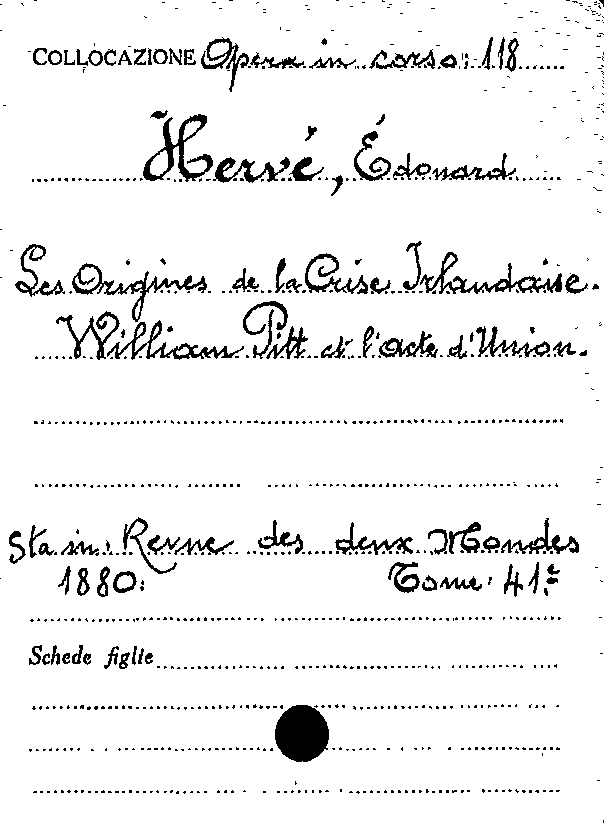 COLLOCAZIONE Opera in corso: 118
Hervé, Édouard
Les Origines de la Crise Irlandaise.
William Pitt et l'acte d'Union.
Sta in: Revue des deux Mondes
1880: Tome: 41.e
Schede figlie